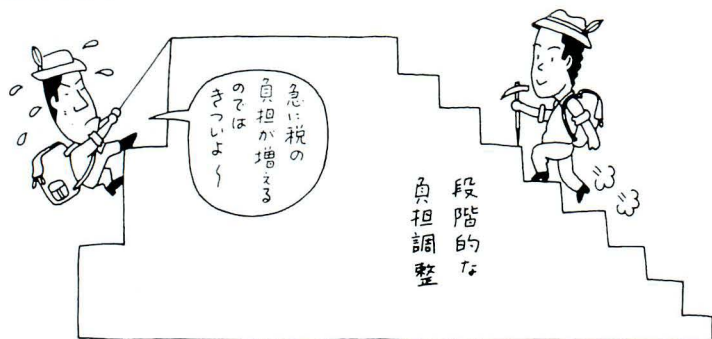 急に税の
負担が増える
のでは
きついよ～
段階的な
負担調整